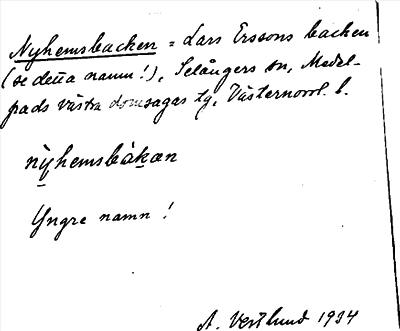 Nyhemsbacken = Lars Erssons backen
(se detta namn!), Selångers sn, Medel-
pads västra domsagas tg, Västernorrl. l.
nỳhemsbàkæn
Yngre namn!
A. Vestlund 1934